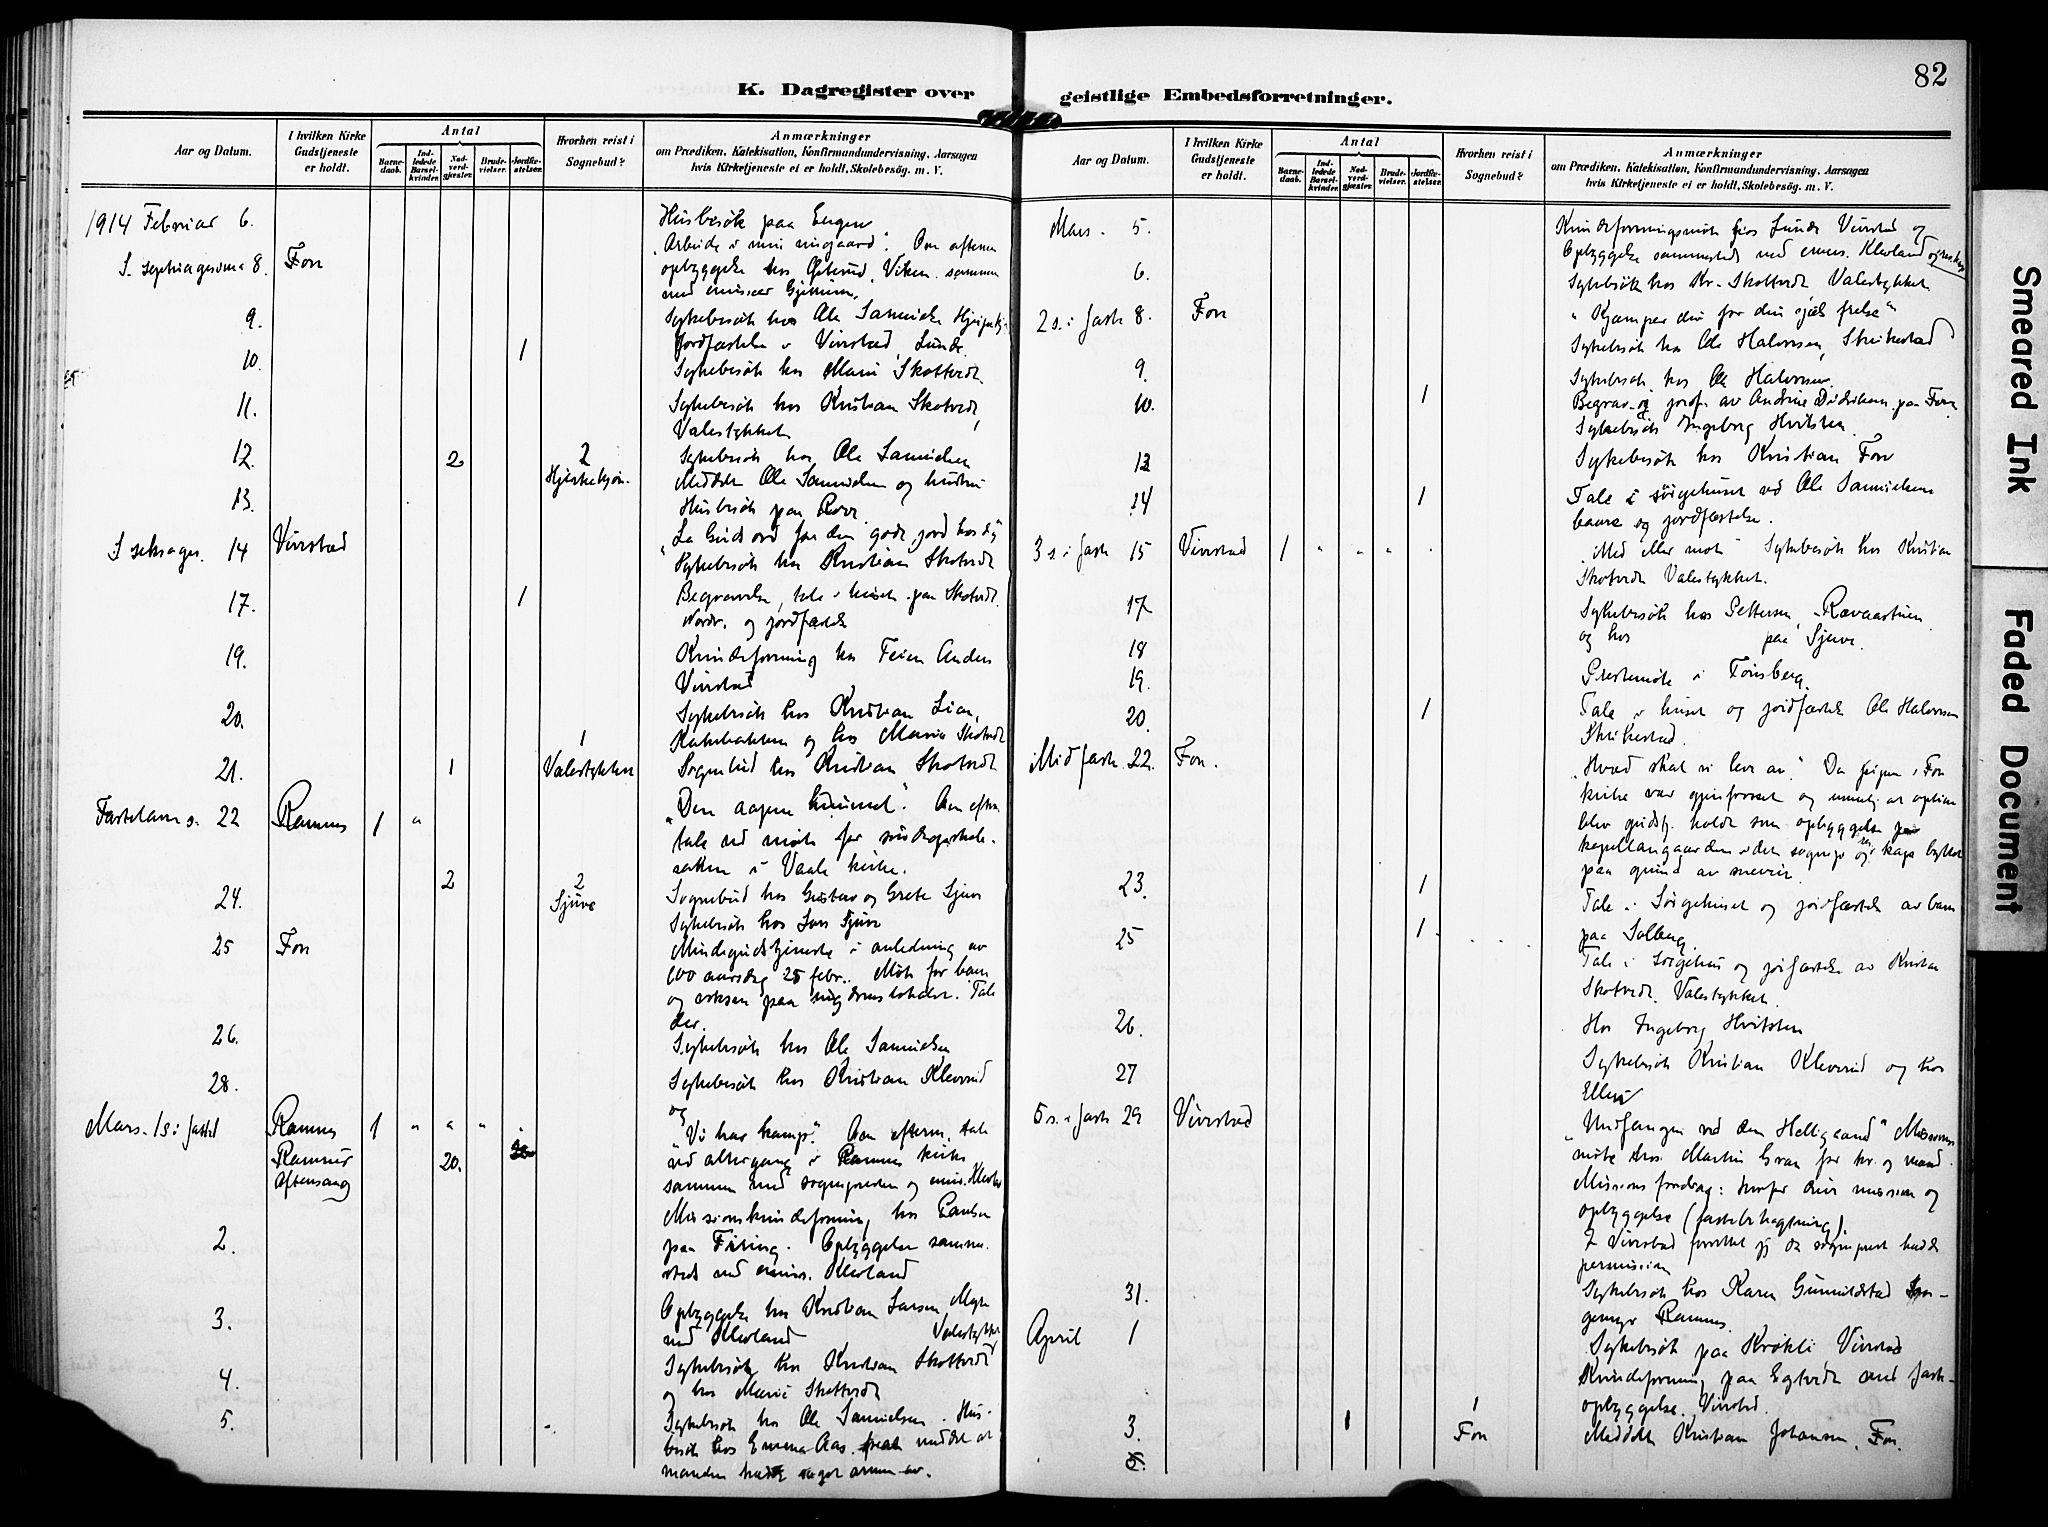 82
K. Dagregister over geistlige Embedsforretninger.
Aar og Datum.
I hvilken Kirke Gudstjeneste er holdt.
Antal
Barnedaab.
Indledede Barselkvinder.
Nadverdgjæster.
Brudevielser.
Jordfæstelser.
Hvorhen reist i Sognebud?
Anmærkninger
om Prædiken, Katekisation, Konfirmandundervisning, Aarsagen
hvis Kirketjeneste ei er holdt, Skolebesög. m. V.
1914 Februar 6. Husbesøk paa
S. septuagesima 8. Fon „Arbeide i min vingaard". Om aftenen
opbyggelse hos Viken sammen
med emissær
9. Sykebesøk hos Ole Samuelsen
10. 1 Jordfæstelse i Vivestad
Sykebesøk hos Marie Skotvedt
11. Sykebesøk hos Kristian Skotvedt,
Valestykket
12. 2 2 Sykebesøk hos Ole Samuelsen
Meddelt Ole Samuelsen og hustru
13. Husbesøk paa
S seksages. 14 Vivestad „La Guds ord faa den gode jord hos dig"
Sykebesøk hos Kristian Skotvedt
17. 1 Begravelse, tale i huset paa Skotvedt
Nordr. og jordfæstelse
19. Kvindeforening hos Anders
Vivestad
20. Sykebesøk hos Kristian Lien,
og hos Maria Skotvedt
21. 1 1 Valestykket Sognebud hos Kristian Skotvedt
Fastelavns s. 22 Ramnes 1 " „Den aapne himmel". Om eftm.
tale ved møte for
saken i Vaale kirke.
24. 2 2 Sjuve Sognebud hos Gustav og Grete Sjuve
Sykebesøk hos Lars Sjuve
25 Fon Mindegudstjeneste i anledning av
100 aarsdag 25 febr. Møte for barn
og voksne paa ungdomslokalet. Tale
der.
26. Sykebesøk hos Ole Samuelsen
28. Sykebesøk hos Kristian Kleverud
og
Mars. 1 s. i faste Ramnes 1 " " " „Vi har kamp". Om efterm. tale
Ramnes Aftensang 20. ved altergang i Ramnes kirke
sammen med sognepresten og emis. Kleoland
2. Missionskvindeforening hos Paulsen
paa . Opbyggelse samme-
steds med emiss. Kleoland
3. Opbyggelse hos Kristian Larsen
med Kleoland Valestykket
4. Sykebesøk hos Kristian Skotvedt
og hos Marie Skotvedt
5. Sykebesøk hos Ole Samuelsen. Hus-
besøk hos Emma Aas, meddelt at
manden
Aar og Datum.
I hvilken Kirke Gudstjeneste er holdt.
Antal
Barnedaab.
Indledede Barselkvinder.
Nadverdgjæster.
Brudevielser.
Jordfæstelser.
Hvorhen reist i Sognebud?
Anmærkninger
om Prædiken, Katekisation, Konfirmandundervisning, Aarsagen
hvis Kirketjeneste ei er holdt, Skolebesög. m. V.
Mars. 5. Kvindeforeningsmøte hos Lunde Vivestad og
Opbyggelse sammesteds med emiss. Kleoland
6. Sykebesøk hos Kr. Skotvedt Valestykket.
2 s. i faste 8. Fon „Kjæmper du for din sjæls frelse"
Sykebesøk hos Ole Halvorsen, Strikestad
9. Sykebesøk hos Ole Halvorsen.
10. 1 Begrav. og jordf. av Andrine Didriksen paa Fon
Sykebesøk Ingeborg Hvitsten
12 Sykebesøk hos Kristian Fon
14 1 Tale i sørgehuset ved Ole Samuelsens
baare og jordfæstelse.
3 s. i faste 15 Vivestad 1 " " " „Med eller mot" Sykebesøk hos Kristian
Skotvedt Valestykket.
17 Sykebesøk hos Pettersen,
18 og hos paa Sjuve.
19. Prestemøte i Tønsberg.
20. 1 Tale i huset og jordfæstelse Ole Halvorsen
Strikestad.
Midfaste. 22. Fon. „Hvad skal vi leve av." Da i Fon
kirke var og umulig at optine
blev gudstj. holdt som opbyggelse paa
kapellangaarden
paa grund av sneveir.
23. 1 Tale i Sørgehuset og jordfæstelse av barn
paa Solberg.
25 1 Tale i Sørgehus og jordfæstelse av Kristian
Skotvedt. Valestykket.
26. Hos Ingeborg Hvitsten
27 Sykebesøk Kristian Kleverud og hos
5 s. i faste 29 Vivestad „Undfangen ved den Helligaand" Missions-
møte hos Martin Gran for kv. og mænd.
Missions foredrag: hvorfor drive mission og
opbyggelse (fastebetragtning).
I Vivestad forrettet jeg da sogneprest hadde
permission
31. Sykebesøk hos Karen Gunnildstad Sog-
Ramnes.
April 1 Sykebesøk paa Krøkli Vivestad
Kvindeforening paa med faste-
opbyggelse. Vivestad.
3. 1 1 Fon Meddelt Kristian Johansen, Fon.
5.
Smeared Ink
Faded Document